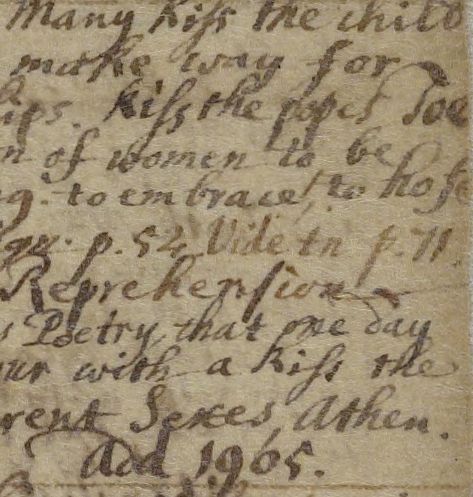 Many kiss the child
make way for
ips. kiss the popes Toe
n of women to be
g. to embrace, to
p. 52 Vide in p. 71.
Reprehension
s Poetry, that one day
our with a kiss the
rent Sexes, Athen.
Add 1965.